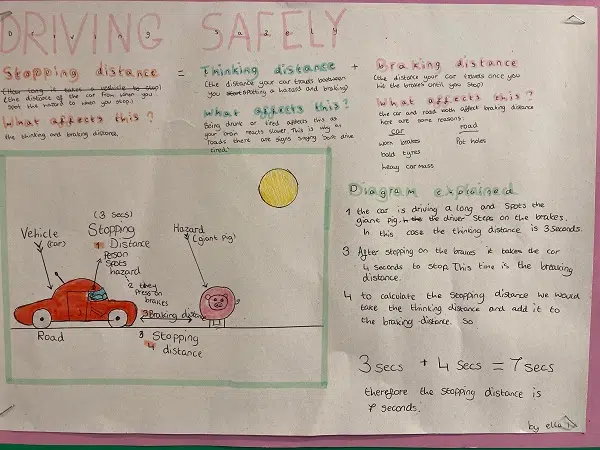 DRIVING SAFELY
Driving Safely
Stopping distance = Thinking distance + Braking distance
(How long it takes a vehicle to stop)
(the distance of the car from when you
spot the hazard to when you stop)
What affects this?
the thinking and braking distance
(the distance your car travels between
you spotting a hazard and braking)
What affects this?
Being drunk or tired affects this as
your brain reacts slower. This is why on
roads there are signs saying 'don't drive
tired.'
(the distance your car travels once you
hit the brakes until you stop)
What affects this?
the car and road both affect braking distance
here are some reasons:
car
worn brakes
bald tyres
heavy car mass
road
Pot holes
Vehicle
(car)
(3 secs)
Stopping
1 Distance
Person
Spots
hazard
2 they
Press on
brakes
Hazard
(Giant Pig)
Braking distance
Road
3 Stopping
4 distance
Diagram explained
1 the car is driving a long and spots the
giant pig. the driver steps on the brakes.
In this case the thinking distance is 3 seconds.
3 After stepping on the brakes it takes the car
4 seconds to stop. This time is the breaking
distance.
4 to calculate the stopping distance we would
take the thinking distance and add it to
the braking distance. So
3 secs + 4 secs = 7 secs
therefore the stopping distance is
7 seconds.
by ella